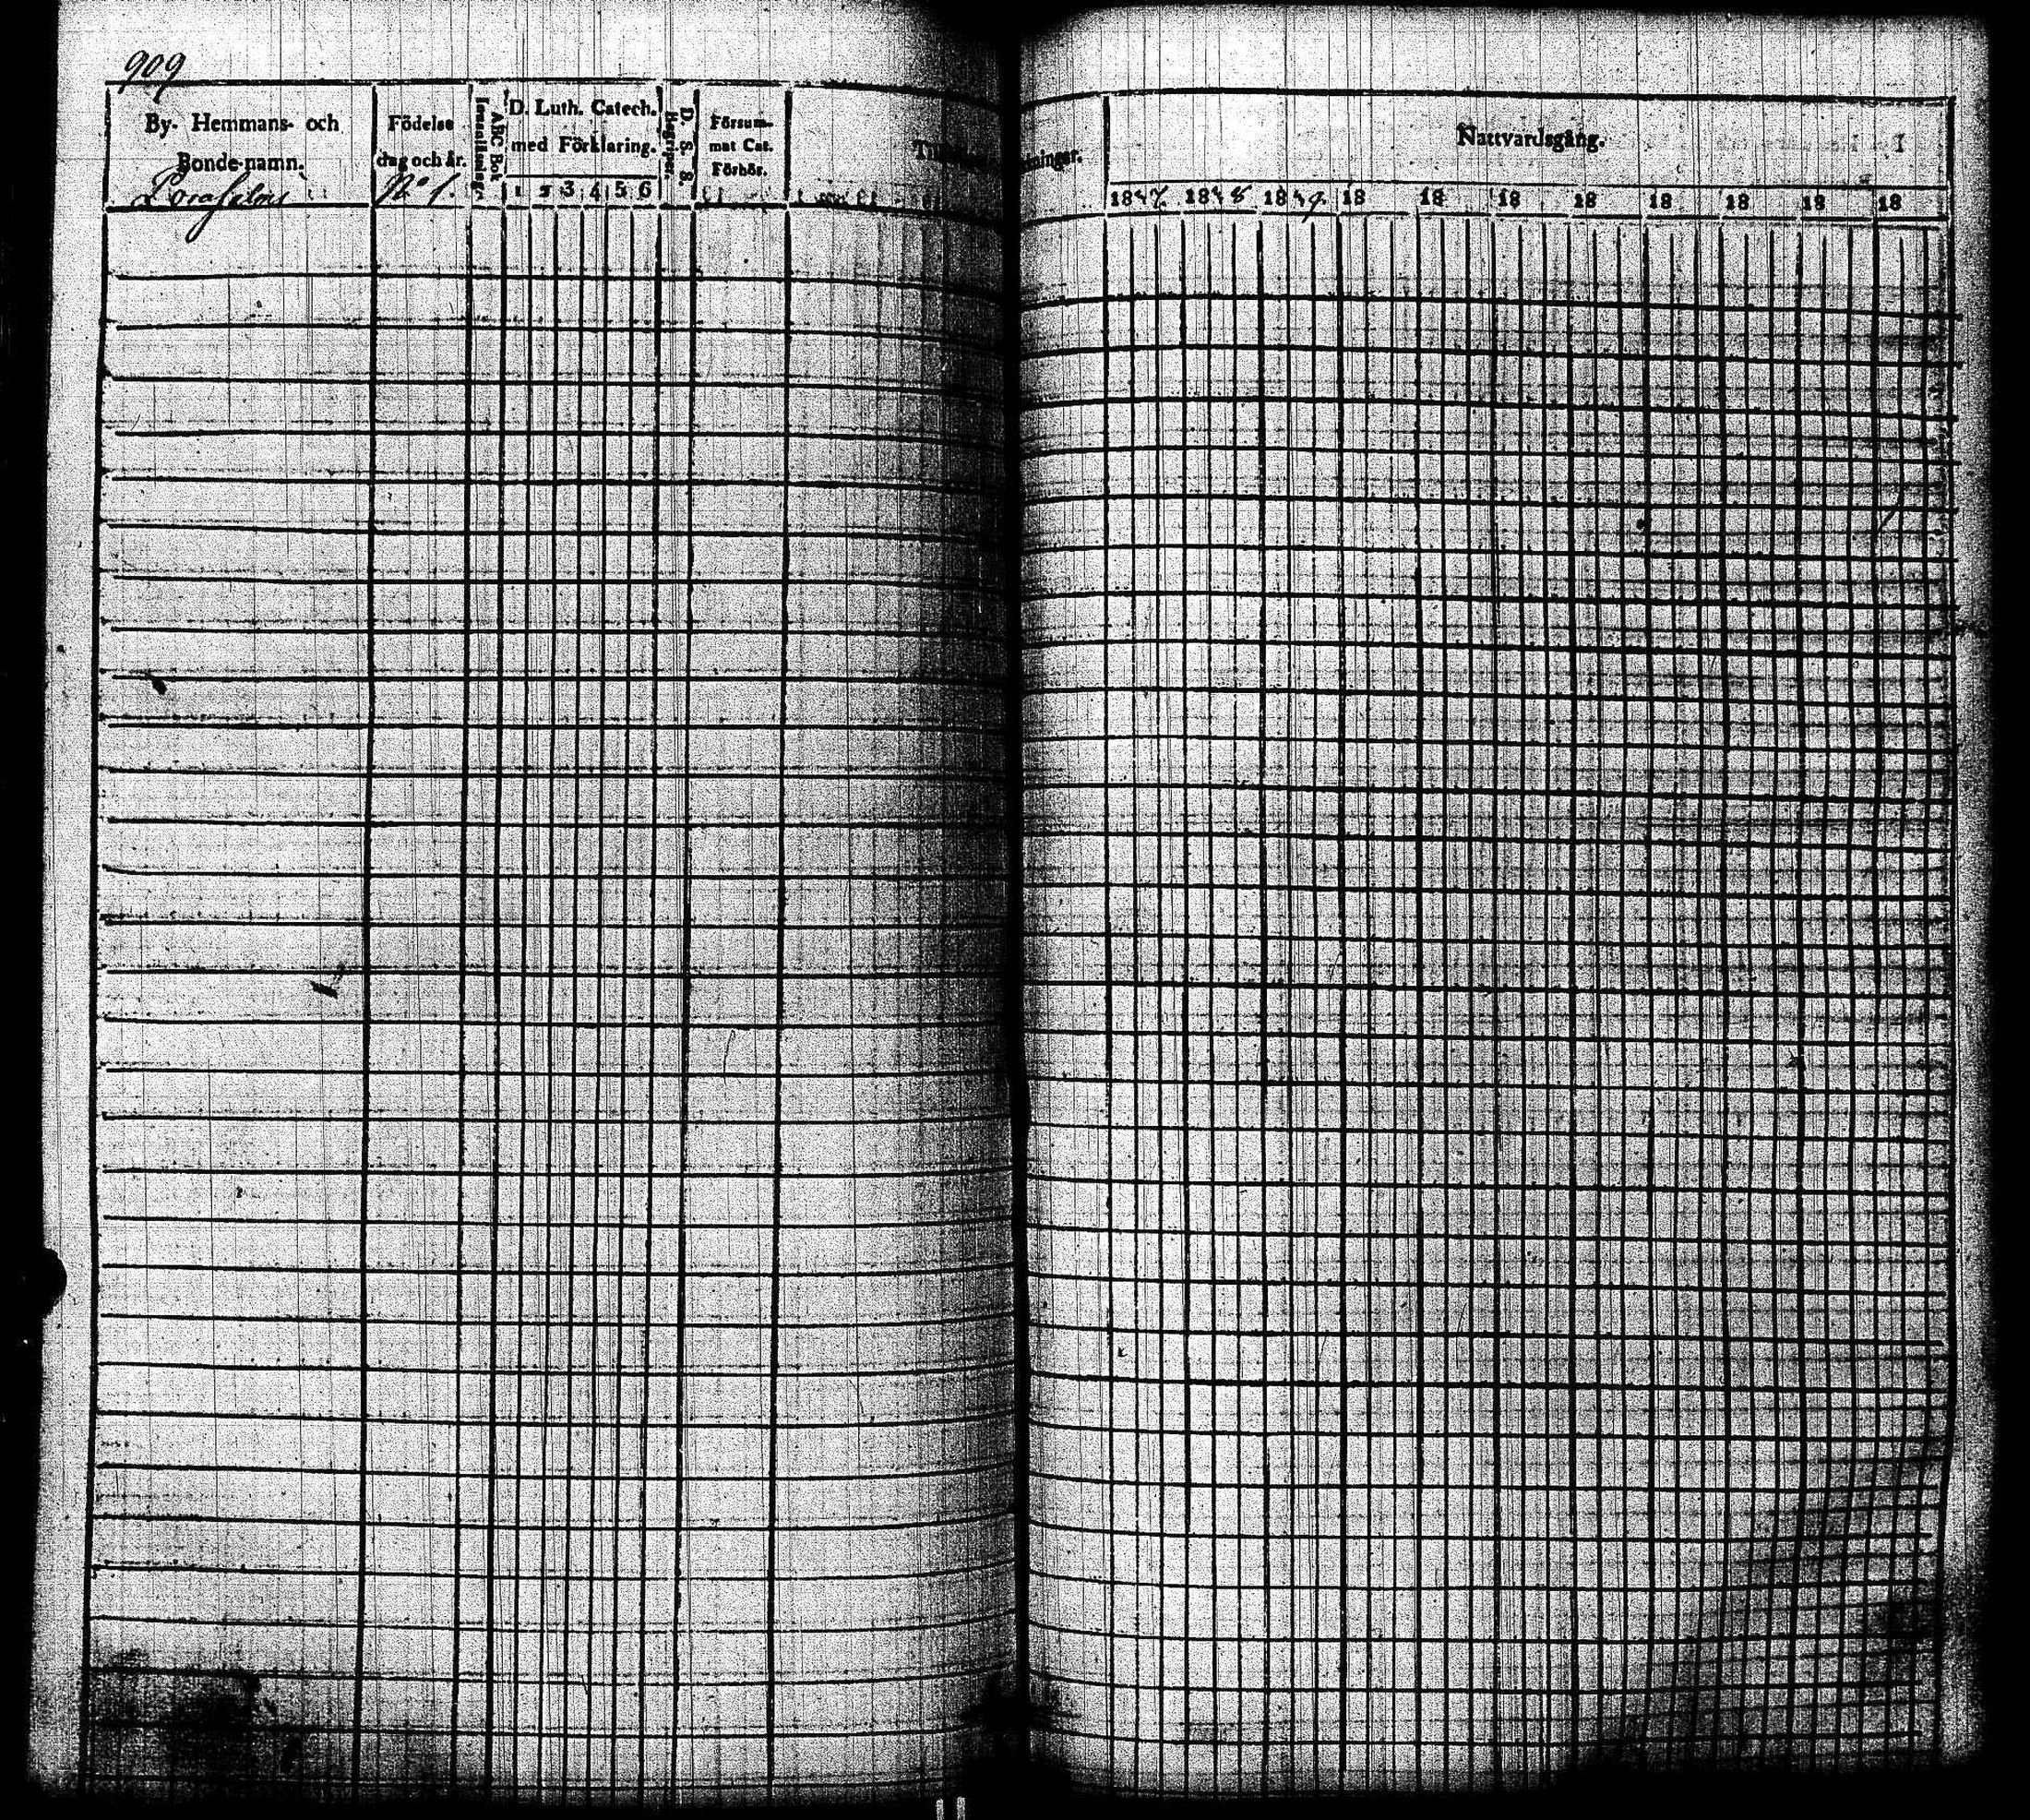 909
By- Hemmans- och
Bonde-namn.
Porasalmi
Födelse
dag och år.
N:o 1.
ABC Bok
Innanläsning.
D. Luth. Catech.
med Förklaring.
1 2 3 4 5 6
D. S. S.
Begriper.
Försum-
mat Cat.
Förhör.
Nattvardsgång.
1847. 1848 1849. 18 18 18 18 18 18 18 18